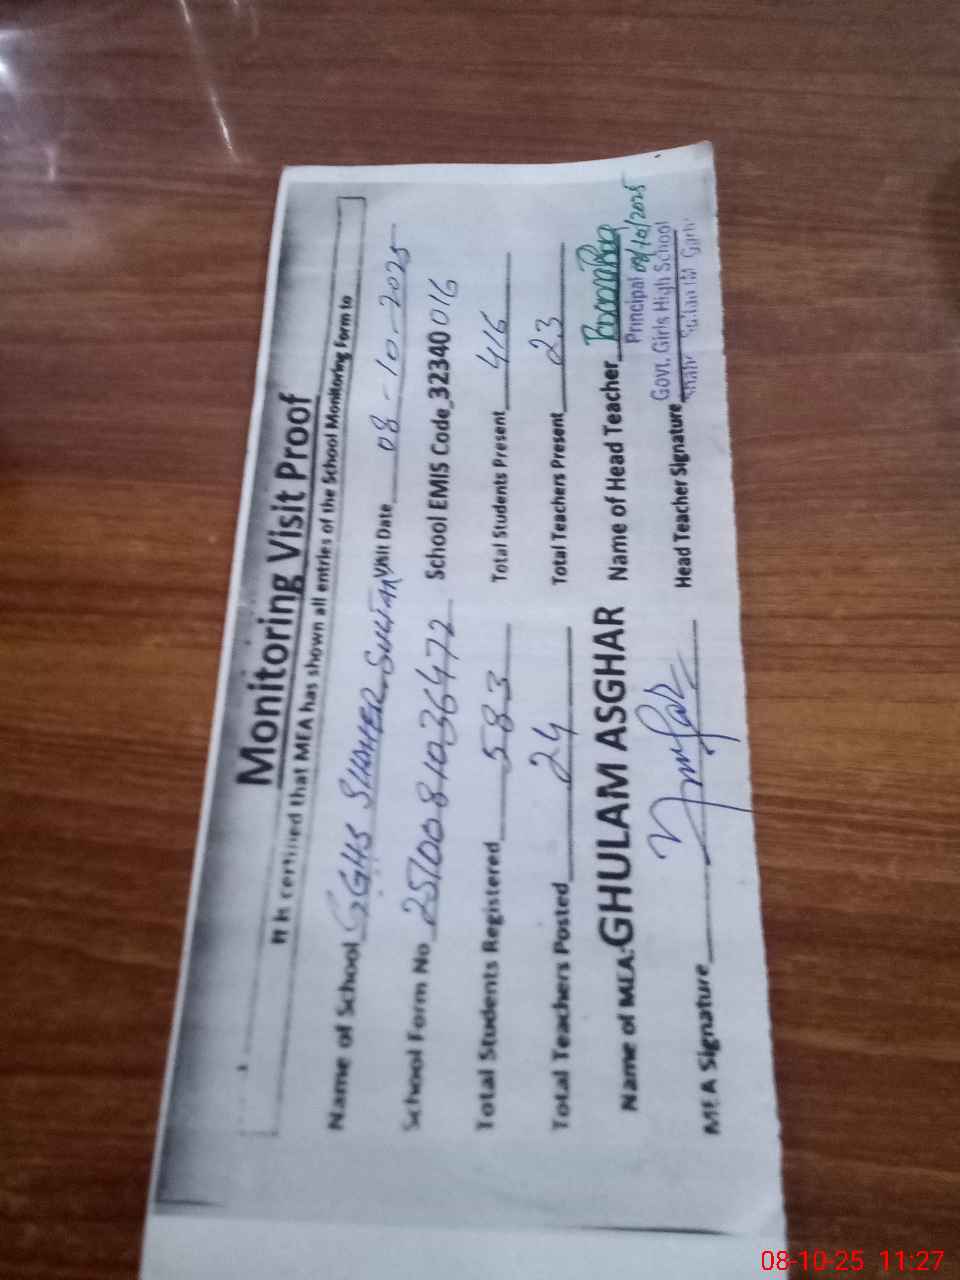 Monitoring Visit Proof
It is certified that MEA has shown all entries of the School Monitoring Form to
Name of School GGHS SHAHER SULTAN Visit Date 08-10-2025
School Form No 2510081036472 School EMIS Code 32340016
Total Students Registered 583 Total Students Present 416
Total Teachers Posted 24 Total Teachers Present 23
Name of MEA: GHULAM ASGHAR Name of Head Teacher
Principal 08/10/2025
Govt. Girls High School
MEA Signature Head Teacher Signature
08-10-25 11:27